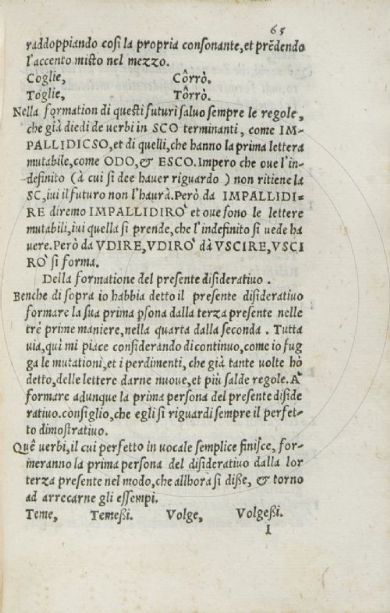 65
raddoppiando così la propria consonante, et prẽdendo
l'accento misto nel mezzo.
Coglie, Côrrò.
Toglie, Tôrrò.
Nella formation di questi futuri saluo sempre le regole,
che già diedi de uerbi in SCO terminanti, come IM-
PALLIDICSO, et di quelli, che hanno la prima lettera
mutabile, come ODO, & ESCO. Impero che oue l'in-
definito (à cui si dee hauer riguardo) non ritiene la
SC, iui il futuro non l'haurà. Però da IMPALLIDI-
RE diremo IMPALLIDIRO` et oue sono le lettere
mutabili, iui quella si prende, che l'indefinito si uede ha
uere. Però da VDIRE, VDIRO` dà VSCIRE, VSCI
RO` si forma.
Della formatione del presente disiderativo.
Benche di sopra io habbia detto il presente disideratiuo
formare la sua prima psona dalla terza presente nelle
tre prime maniere, nella quarta dalla seconda. Tutta
uia, quì mi piace considerando di continuo, come io fug
ga le mutationi, et i perdimenti, che già tante uolte hò
detto, delle lettere darne nuoue, et più salde regole. A`
formare adunque la prima persona del presente diside
ratiuo. consiglio, che egli si riguardi sempre il perfet-
to dimostratiuo.
Quê uerbi, il cui perfetto in uocale semplice finisce, for-
meranno la prima persona del disideratiuo dalla lor
terza presente nel modo, che allhora si disse, & torno
ad arrecarne gli essempi.
Teme, Temessi. Volge, Volgessi.
I